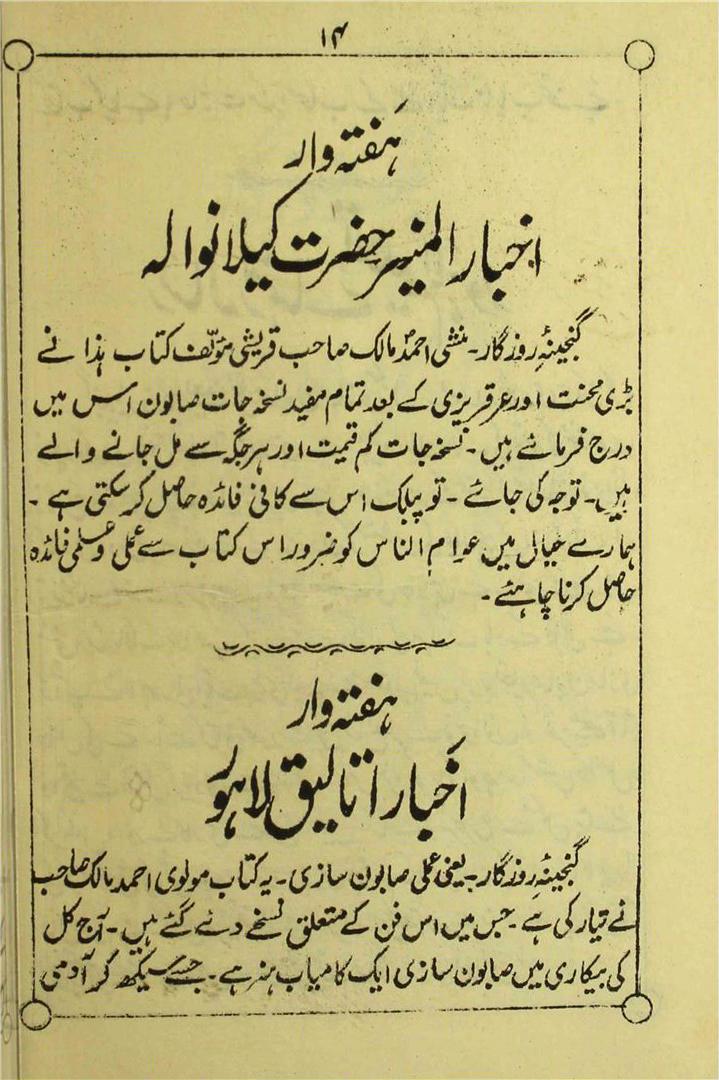 ۱۴
ہفتہ وار
اخبار المنیر حضرت کیلانوالہ
گنجینۂ روزگار۔ منشی احمد مالک صاحب قریشی مؤلف کتاب ہذا نے
بڑی محنت اور عرقریزی کے بعد تمام مفید نسخہ جات صابون اس میں
درج فرمائے ہیں۔ نسخہ جات کم قیمت اور ہر جگہ سے مل جانے والے
ہیں۔ توجہ کی جائے۔ تو پبلک اس سے کافی فائدہ حاصل کر سکتی ہے۔
ہمارے خیال میں عوام الناس کو ضرور اس کتاب سے عملی و علمی فائدہ
حاصل کرنا چاہئے۔
ہفتہ وار
اخبار اتالیق لاہور
گنجینۂ روزگار۔ یعنی عملی صابون سازی۔ یہ کتاب مولوی احمد مالک صاحب
نے تیار کی ہے۔ جس میں اس فن کے متعلق نسخے دئے گئے ہیں۔ آج کل
کی بیکاری میں صابون سازی ایک کامیاب ہنر ہے۔ جسے سیکھ کر آدمی